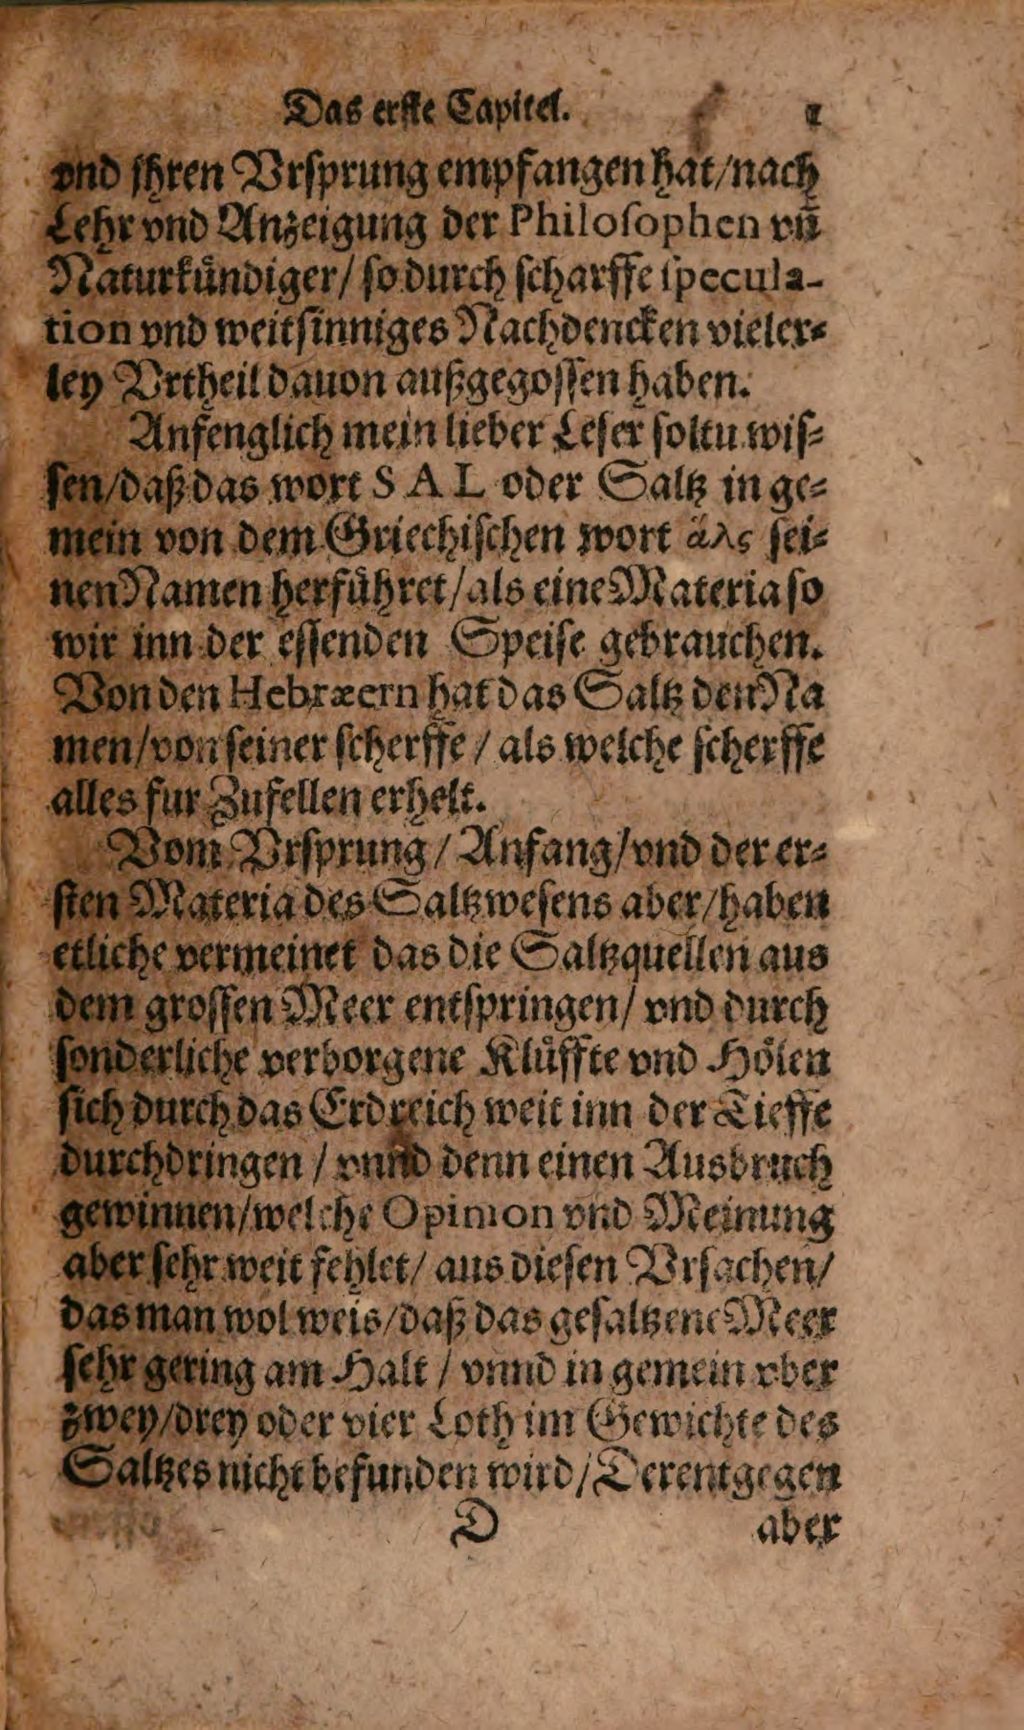 Das erſte Capitel. 1
vnd jhren Vrſprung empfangen hat/nach
Lehr vnd Anzeigung der Philoſophen vñ
Naturkuͤndiger/ ſo durch ſcharffe ſpecula-
tion vnd weitſinniges Nachdencken vieler⸗
ley Vrtheil dauon außgegoſſen haben.
Anfenglich mein lieber Leſer ſoltu wiſ⸗
ſen/daß das wort S A L oder Saltz in ge⸗
mein von dem Griechiſchen wort ἅλς ſei⸗
nen Namen herfuͤhret/als eine Materia ſo
wir inn der eſſenden Speiſe gebrauchen.
Von den Hebræern hat das Saltz den Na
men/von ſeiner ſcherffe / als welche ſcherffe
alles fur Zufellen erhelt.
Vom Vrſprung / Anfang/vnd der er⸗
ſten Materia des Saltzweſens aber/haben
etliche vermeinet das die Saltzquellen aus
dem groſſen Meer entſpringen/ vnd durch
ſonderliche verborgene Kluͤffte vnd Hoͤlen
ſich durch das Erdreich weit inn der Tieffe
durchdringen / vnnd denn einen Ausbruch
gewinnen/welche Opinion vnd Meinung
aber ſehr weit fehlet/ aus dieſen Vrſachen/
das man wol weis/daß das geſaltzene Meer
ſehr gering am Halt / vnnd in gemein vber
zwey/drey oder vier Loth im Gewichte des
Saltzes nicht befunden wird/Derentgegen
D aber